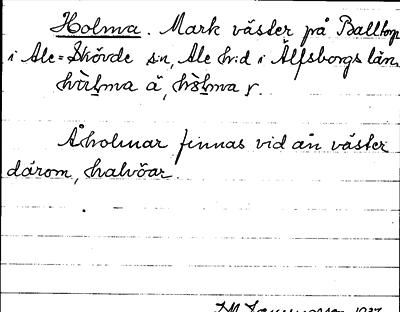 Holma. Mark väster på Balltorp
i Ale=Skövde s:n, Ale h:d i Älfsborgs län.
hòlma ä, hòlma y.
Åholmar finnas vid ån väster
därom, halvöar.
1927